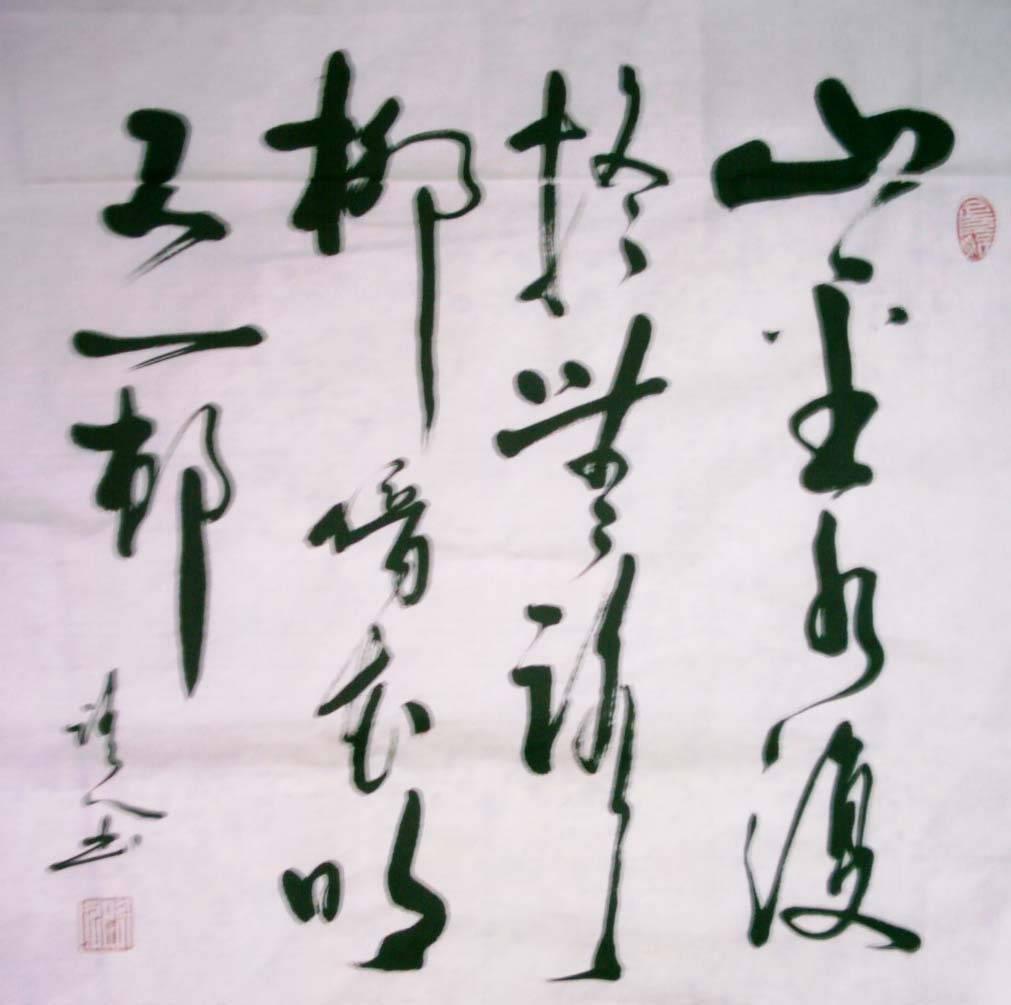 山重水復
疑無路
柳暗花明
又一邨
书